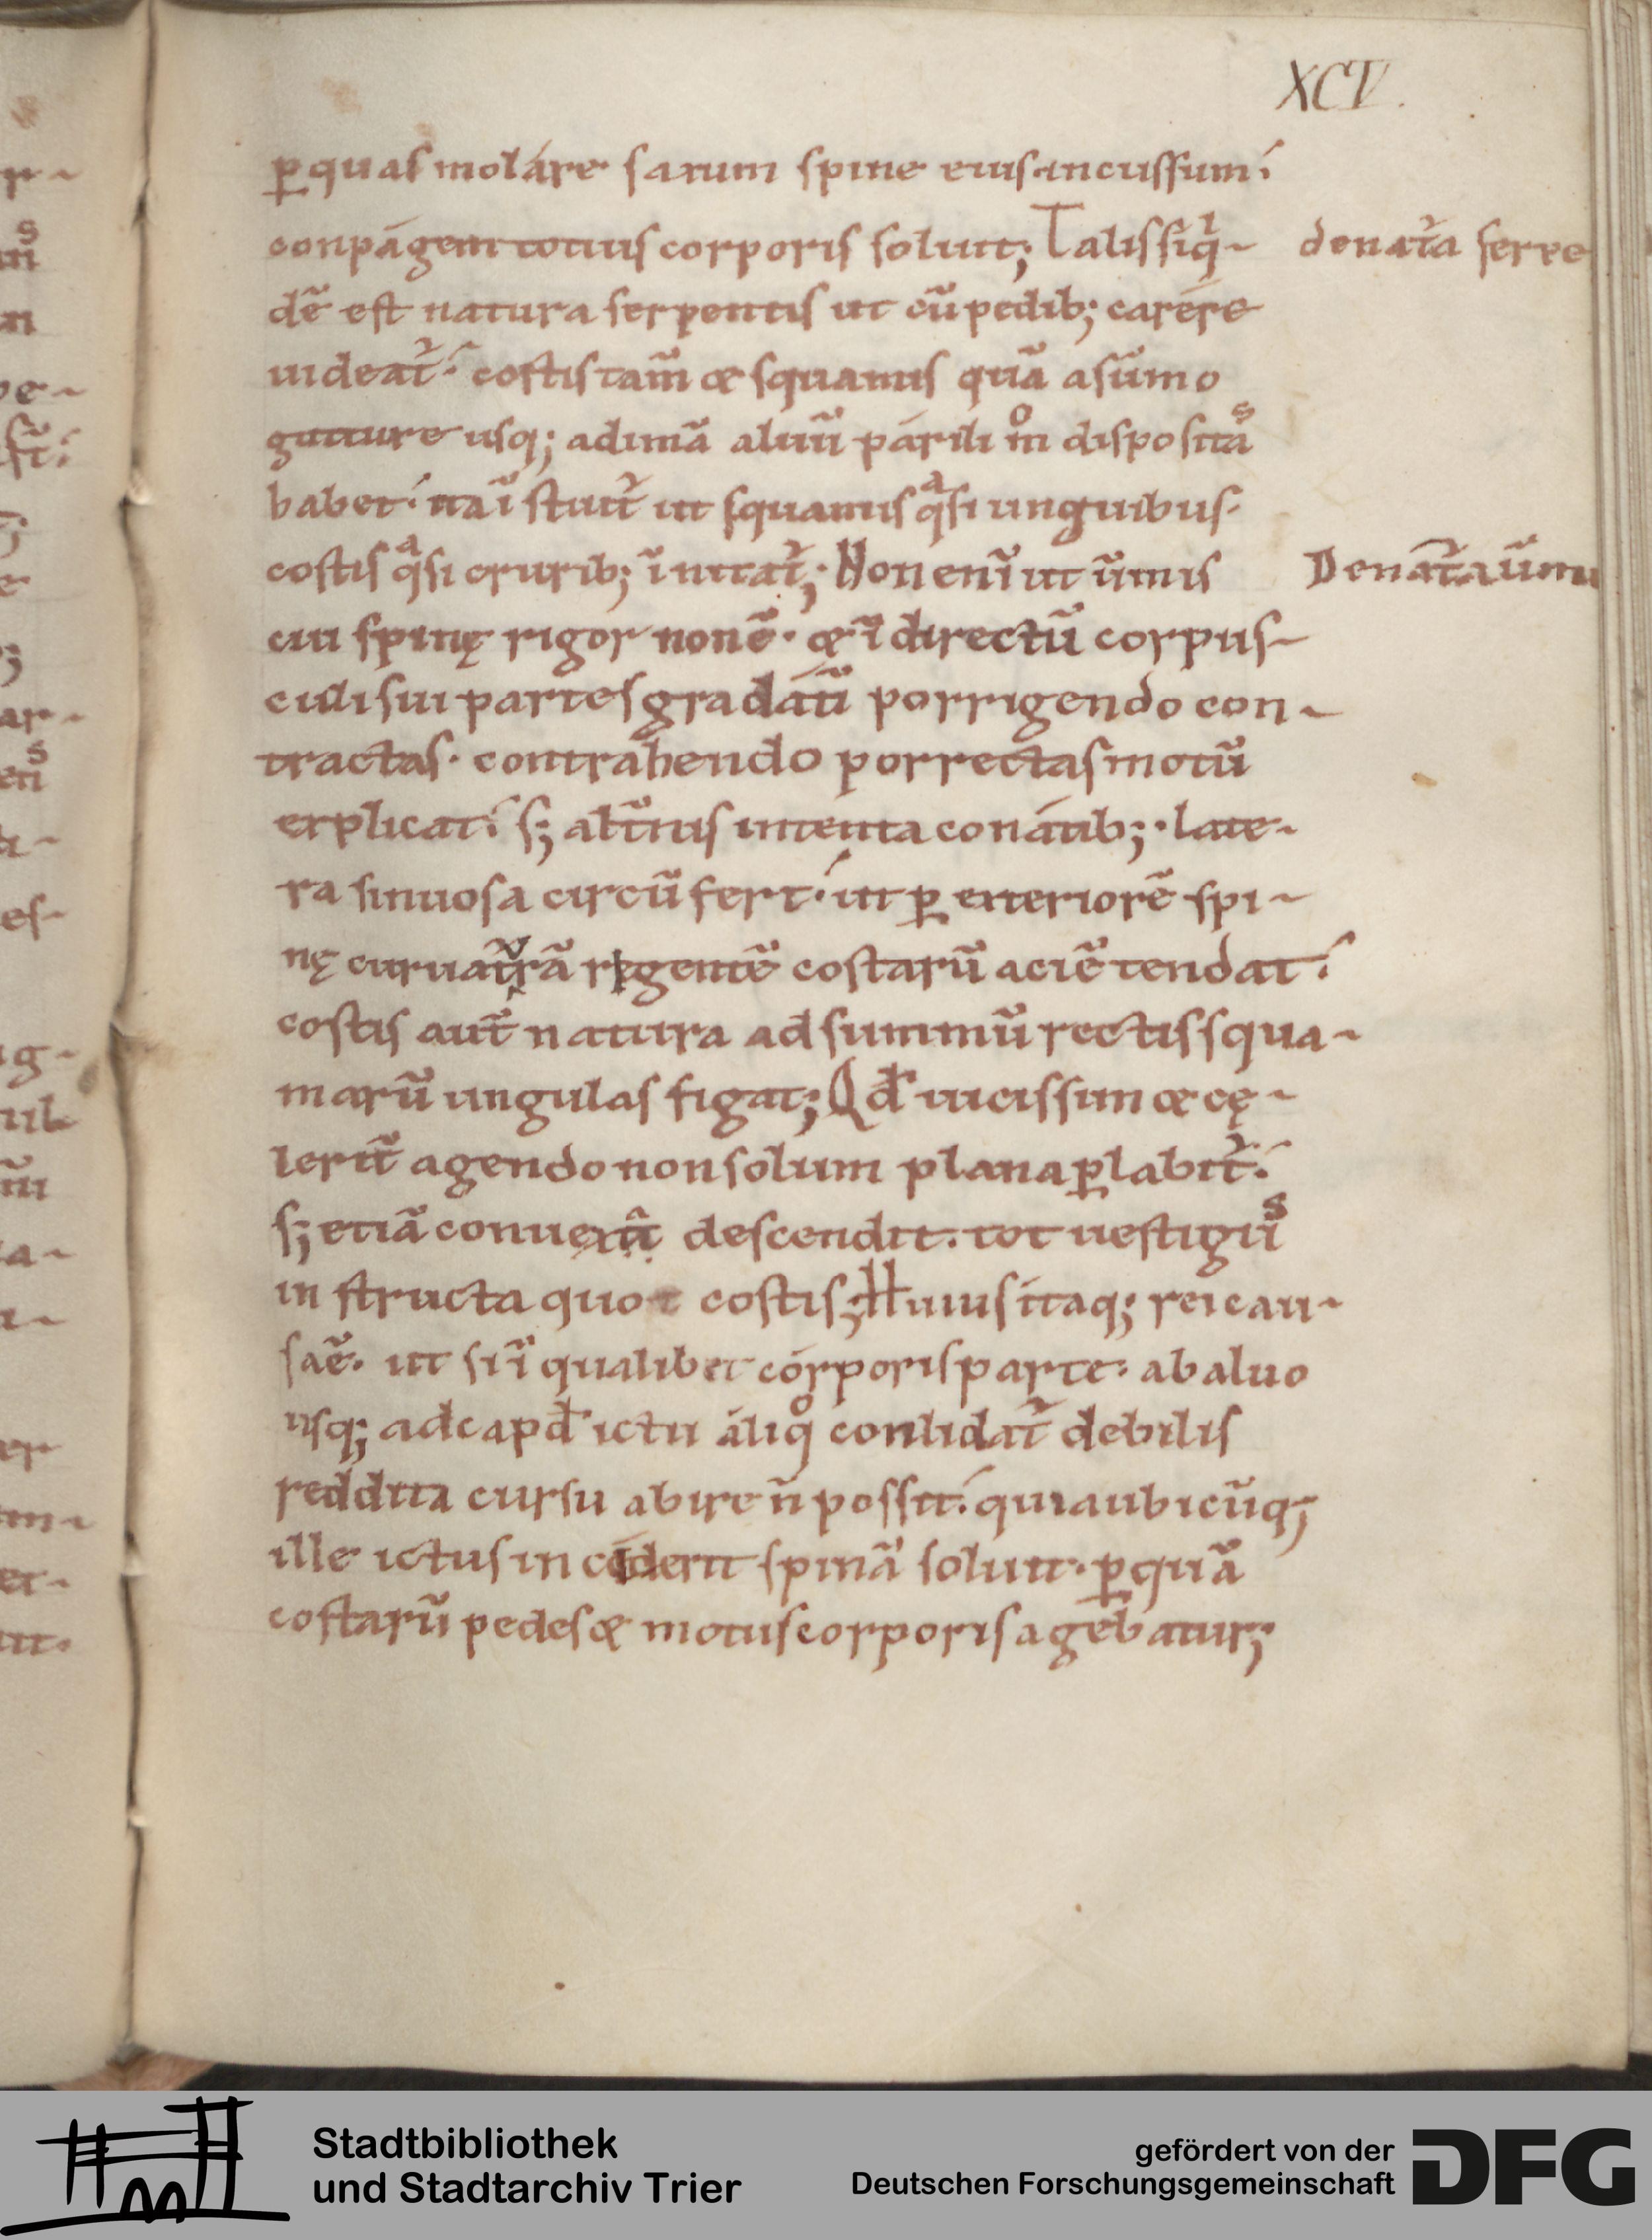 XCV.
ꝑ quas molare saxum spine eius incussum
conpagem totius corporis soluit; Talis siqͥ-
dē est natura serpentis ut cū pedib; carere
uideat᷑. costis tam̄ & squamis quā a sūmo
gutture usq; ad imā aluū parili m̊ dispositaˢ
habet. ita ī stuit᷑ ut squamis qͣsi unguibus.
costis qͣsi cruribus; īnitat᷑; Non enī ut ūmis
cui spinę rigor non ē. & ī directū corpus-
culi sui partes gradatī porrigendo con-
tractas. contrahendo porrectas motū
explicat. s; alt̄nis intenta conatib;. late-
ra sinuosa circūfert. ut ꝑ exteriorē spi-
nę curuat᷑rā rigentē costarū aciē tendat.
costis aut̄ natura ad summū rectis squa-
marū ungulas figat; Qđ uicissim & cę-
lerit̄ agendo non solum plana ꝑlabit᷑.
s; etiā conuexa descendit. tot uestigiiˢ
instructa quot costis; Huius itaq; rei cau-
sa ē. ut si ī qualibet corporis parte. ab aluo
usq; ad capđ ictu aliqͦ conlidat᷑ debilis
reddita cursu abire n̄ possit. quia ubicūq;
ille ictus inciderit spinā soluit. ꝑ quā
costarū pedes & motus corporis agebatur;
de nat᷑a serpe
De nat᷑a ūmi
Stadtbibliothek
und Stadtarchiv Trier
gefördert von der
Deutschen Forschungsgemeinschaft
DFG